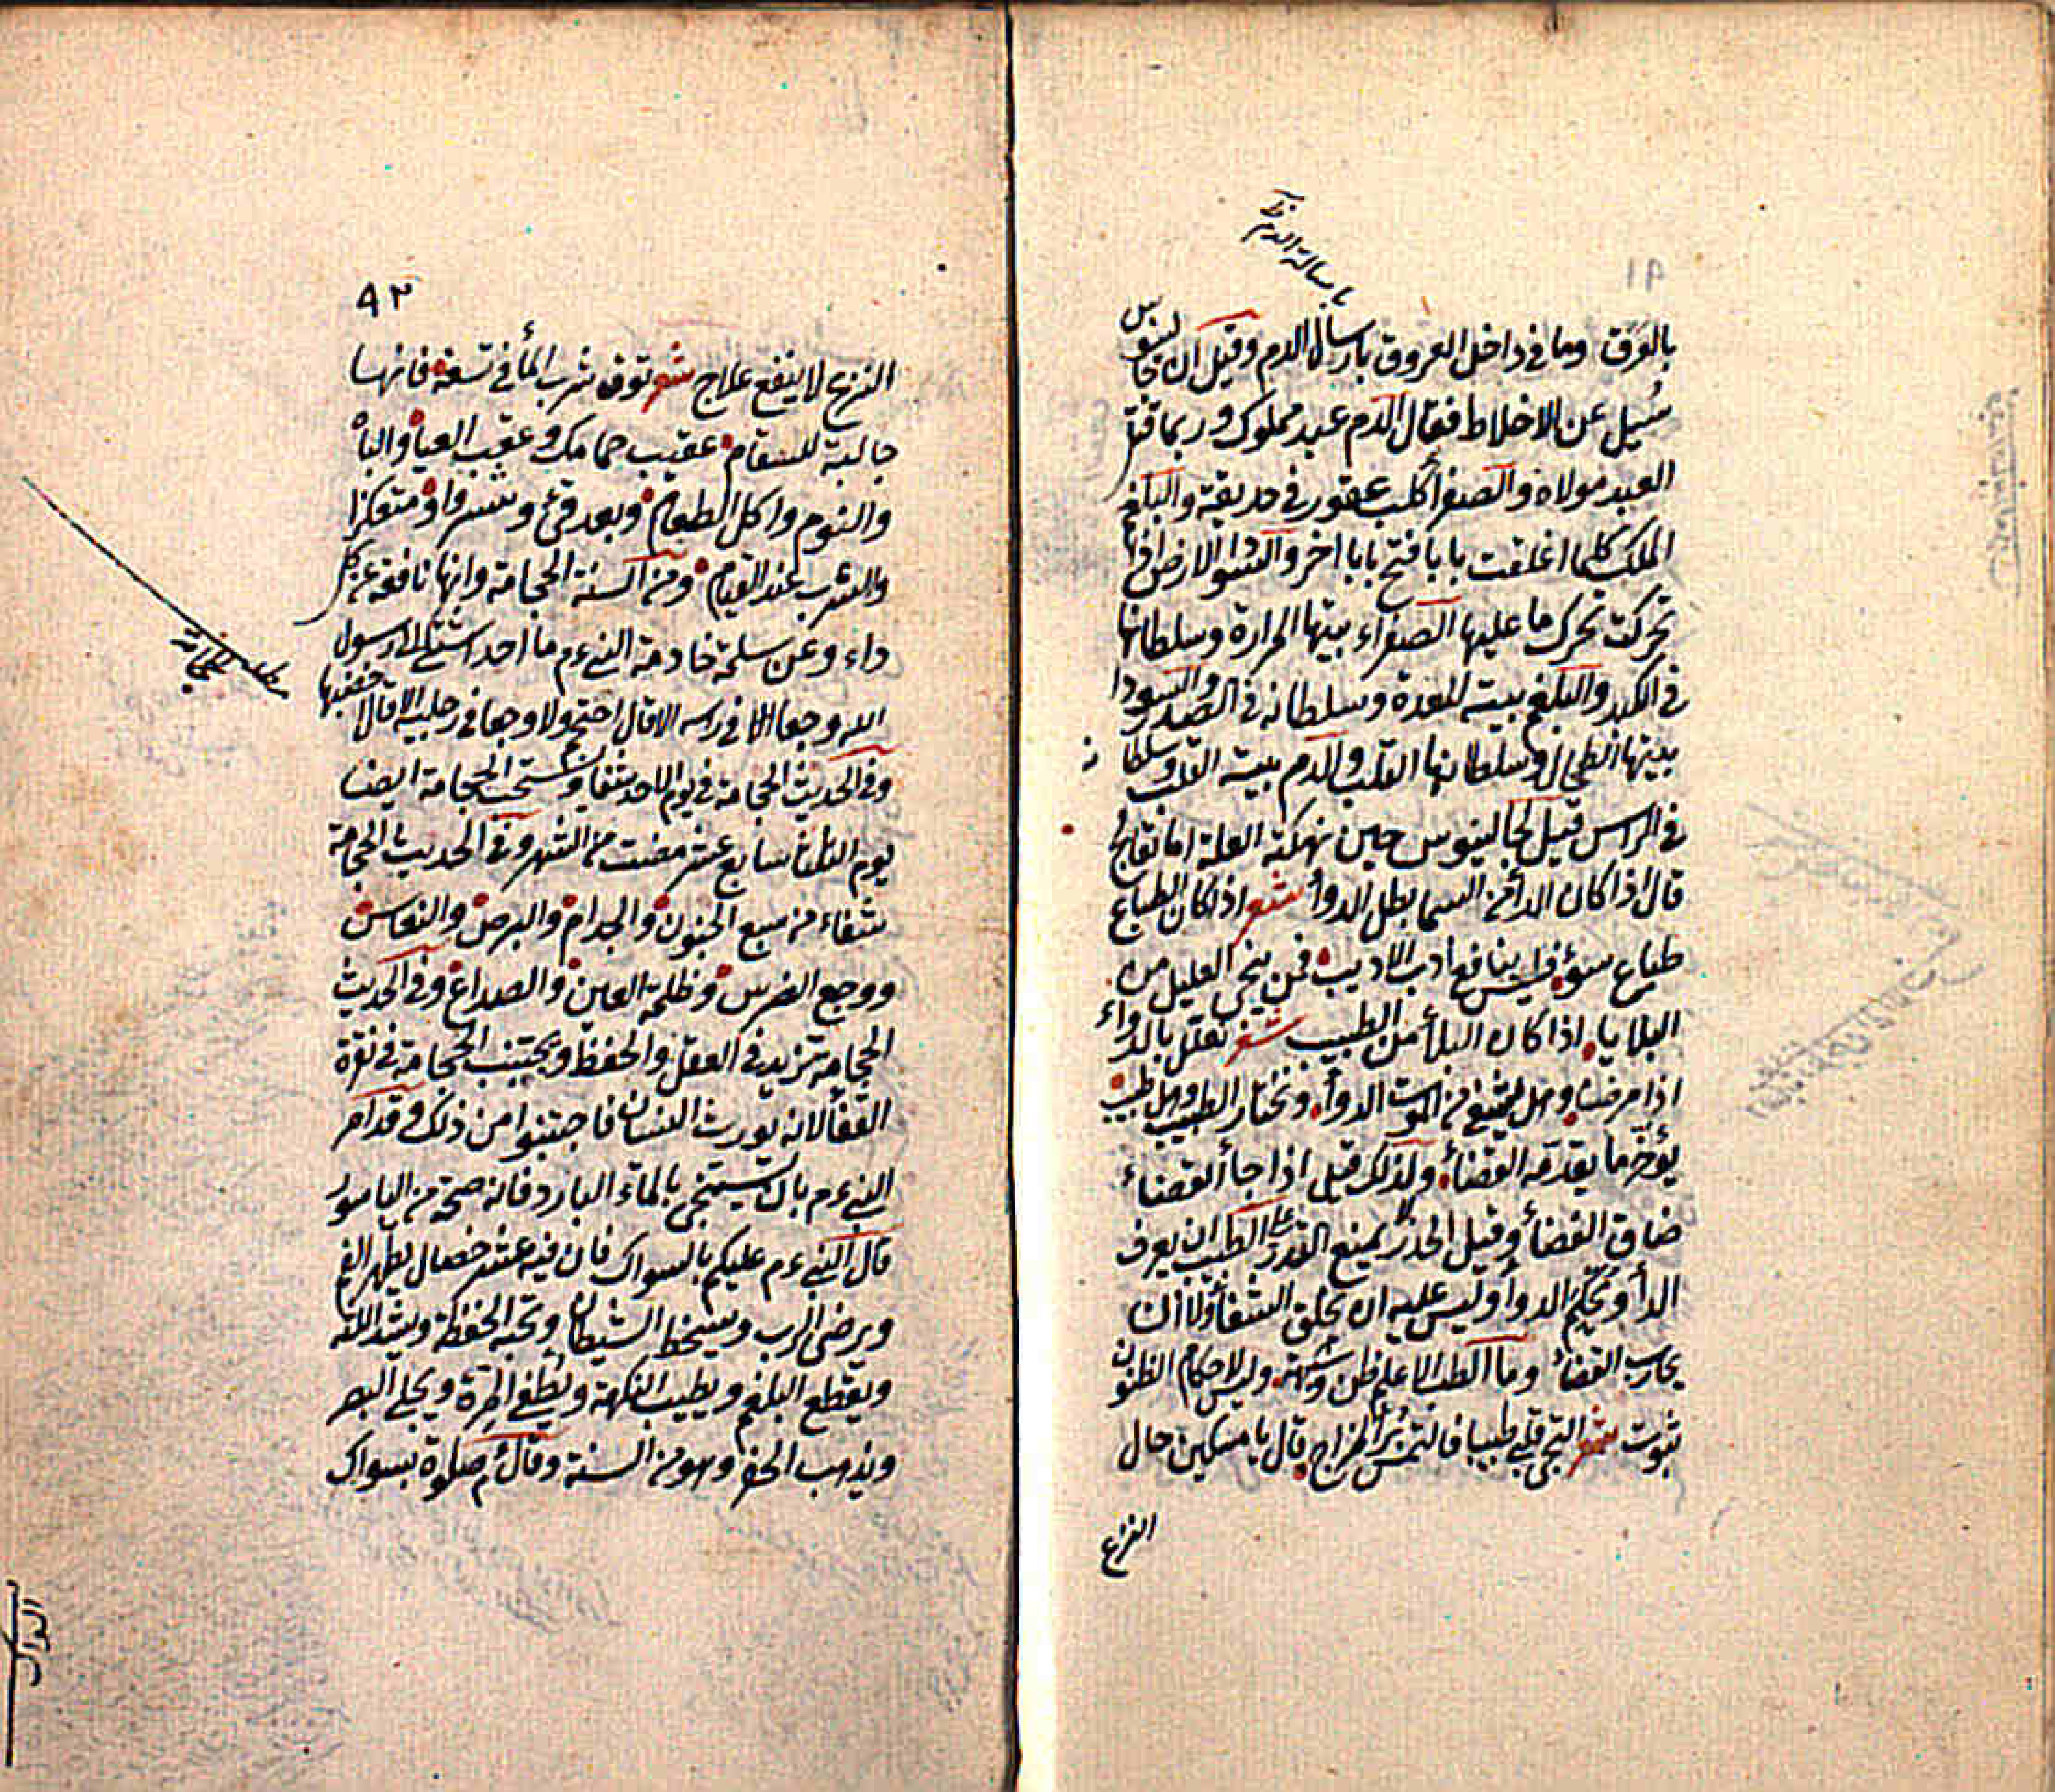 باسالة الدم نظ
بالعَرَق وما فى داخل العروق بارسال الدم وقيل ان جالينوس
سُيل عن الاخلاط فقال الدم عبد مملوك وربما قتل
العبد مولاه والصفرأ كلب عقور فى حديقة والبلغم
الملك كلما اغلقت بابا فتح بابا اخر والسودا الارض اذا
تحركت تحرك ما عليها الصفراء بيتها المرارة وسلطانها
فى الكبد والبلغم بيته المعدة وسلطانه فى الصدر والسودا
بيتها الطحال وسلطانها القلب والدم بيته القلب وسلطانه
فى الراس قيل لجالينوس حين نهكته العلة اما تعالج
قال اذا كان الدأ من السما بطل الدوأ شعر اذا كان الطباع
طباع سوء فليس بنافع ادب الاديب فمن ينجى العليل من
البلايا اذا كان البلأ من الطبيب شعر نعلل بالدواء
اذا مرضنا وهل يشفى من الموت الدوأ ونختار الطبيب وهل طبيب
يؤخر ما يقدمه القضأ ولذلك قيل اذا جأ القضاء
ضاق الفضأ وقيل الحذر لا يمنع القدر على الطبيب ان يعرف
الدأ ويحكم الدوأ وليس عليه ان يخلق الشفأ ولا ان
يحارب القضأ وما الطب الا علم ظن وشبهة وليس لاحكام الظنون
ثبوت شعر التجى قلبى طبيبا فالتمس برأ المزاج قال يا مسكين حال
النزع
٩٢
النزع لا ينفع علاج شعر توق شرب المأ فى تسعة فانها
جالبة للسقام عقيب حمامك وعقب العيا والباه
والنوم واكل الطعام وبعد قئ و ومتعكزا
والشرب عند القيام ومن السنة الحجامة وانها نافعة من كل
داء وعن سلمة خادمة النبى ءم ما احد اشتكى الى رسول
الله وجعا الا فى راسه الا قال احتجم ولا وجعا فى رجليه الا قال اخضبها
وفى الحديث الحجامة فى يوم الاحد شفا وتستحب الحجامة ايضا
يوم الثلثا سابع عشر مضت من الشهر وفى الحديث الحجامة
شفاء من سبع الجنون والجدام والبرص والنعاس
ووجع الضرس وظلمة العين والصداع وفى الحديث
الحجامة تزيد فى العقل والحفظ ويجتنب الحجامة فى نقرة
القفأ لانه تورث النسيان فاجتنبوا من ذلك وقد امر
النبى ءم بان يستنجى بالمآء البارد فانه صحة من الباسور
قال النبى ءم عليكم بالسواك فان فيه عشر خصال يطهر الفم
ويرضى الرب ويسخط الشيطان وتحبه الحفظة ويشد اللثة
ويقطع البلغم ويطيب النكهة ويطفئ المرة ويجلى البصر
ويذهب الحفر وهو من السنة وقال ءم صلوة بسواك
مطلب الحجامة
السواك